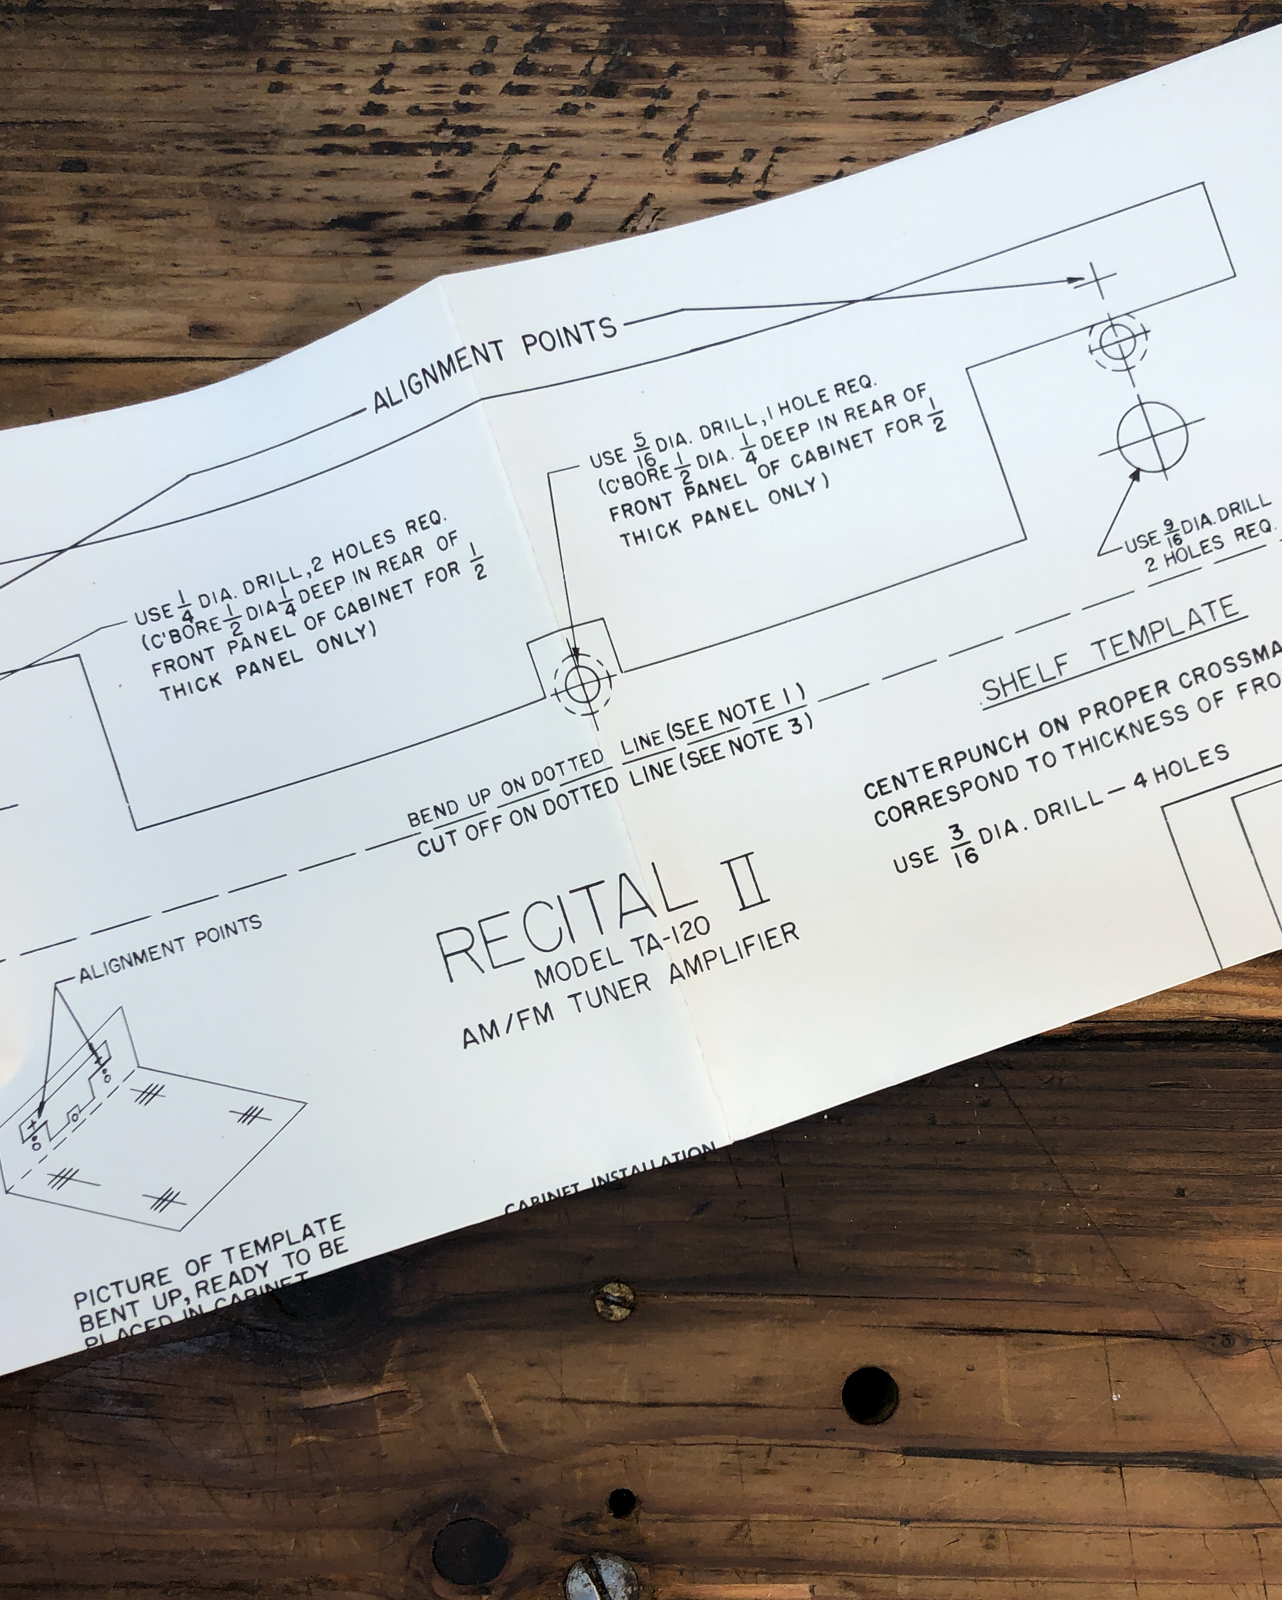 ALIGNMENT POINTS
USE 5/16 DIA. DRILL, 1 HOLE REQ.
(C'BORE 1/2 DIA. 1/4 DEEP IN REAR OF
FRONT PANEL OF CABINET FOR 1/2
THICK PANEL ONLY)
USE 1/4 DIA. DRILL, 2 HOLES REQ.
(C'BORE 1/2 DIA 1/4 DEEP IN REAR OF
FRONT PANEL OF CABINET FOR 1/2
THICK PANEL ONLY)
USE 9/16 DIA. DRILL
2 HOLES REQ.
BEND UP ON DOTTED LINE (SEE NOTE 1)
CUT OFF ON DOTTED LINE (SEE NOTE 3)
SHELF TEMPLATE
CENTERPUNCH ON PROPER
CORRESPOND TO THICKNESS OF
USE 3/16 DIA. DRILL — 4 HOLES
RECITAL II
MODEL TA-120
AM/FM TUNER AMPLIFIER
ALIGNMENT POINTS
PICTURE OF TEMPLATE
BENT UP, READY TO BE
PLACED IN CABINET
CABINET INSTALLATION